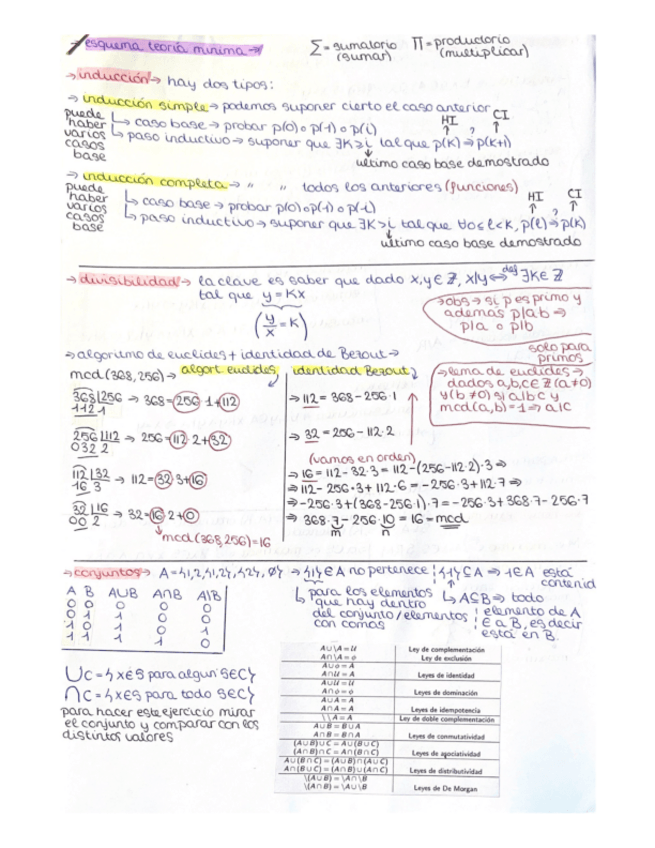 esquema teoría mínima
Σ = sumatorio (sumar)
Π = productorio (multiplicar)
→ inducción → hay dos tipos:
→ inducción simple → podemos suponer cierto el caso anterior
puede haber varios casos base
↳ caso base → probar p(0) o p(-1) o p(i)
HI ? CI
↳ paso inductivo → suponer que ∃K≥i tal que p(K) ⇒ p(K+1)
último caso base demostrado
→ inducción completa → " " todos los anteriores (funciones)
puede haber varios casos base
↳ caso base → probar p(0) o p(-1) o p(-i)
HI ? CI
↳ paso inductivo → suponer que ∃K>i tal que ∀0≤l<K, p(l) ⇒ p(K)
último caso base demostrado
→ divisibilidad → la clave es saber que dado x,y ∈ ℤ, x|y ⇔def ∃K∈ℤ
tal que y = Kx
(y/x = K)
→ obs → si p es primo y
además p|ab ⇒
p|a o p|b
solo para primos
→ algoritmo de euclides + identidad de Bezout →
mcd(368,256) → algort euclides
identidad Bezout
→ lema de euclides →
dados a,b,c∈ℤ (a≠0)
y (b≠0) si a|bc y
mcd(a,b)=1 ⇒ a|c
368|256 → 368 = 256·1+112
112 1
256|112 → 256 = 112·2+32
032 2
112|32 → 112 = 32·3+16
16 3
32|16 → 32 = 16·2+0
00 2
mcd(368,256)=16
→ 112 = 368 - 256·1
→ 32 = 256 - 112·2
(vamos en orden)
→ 16 = 112 - 32·3 = 112 - (256 - 112·2)·3 ⇒
⇒ 112 - 256·3 + 112·6 = -256·3 + 112·7 ⇒
⇒ -256·3 + (368-256·1)·7 = -256·3 + 368·7 - 256·7
⇒ 368·7 - 256·10 = 16 = mcd
m n
→ conjuntos → A = {1,2,{1,2},{2},∅} → {1}∈A no pertenece
{1}⊆A → 1∈A está contenid
↳ para los elementos
que hay dentro
del conjunto/elementos
con comas
↳ A⊆B → todo
elemento de A
∈ a B, es decir
está en B.
A B A∪B A∩B A\B
0 0 0 0 0
0 1 1 0 0
1 0 1 0 1
1 1 1 1 0
∪C = {x∈S para algun S∈C}
∩C = {x∈S para todo S∈C}
para hacer este ejercicio mirar
el conjunto y comparar con los
distintos valores
A∪\A = U Ley de complementación
A∩\A = ∅ Ley de exclusión
A∪∅ = A
A∩U = A Leyes de identidad
A∪U = U
A∩∅ = ∅ Leyes de dominación
A∪A = A
A∩A = A Leyes de idempotencia
\\A = A Ley de doble complementación
A∪B = B∪A
A∩B = B∩A Leyes de conmutatividad
(A∪B)∪C = A∪(B∪C)
(A∩B)∩C = A∩(B∩C) Leyes de asociatividad
A∪(B∩C) = (A∪B)∩(A∪C)
A∩(B∪C) = (A∩B)∪(A∩C) Leyes de distributividad
\(A∪B) = \A∩\B
\(A∩B) = \A∪\B Leyes de De Morgan